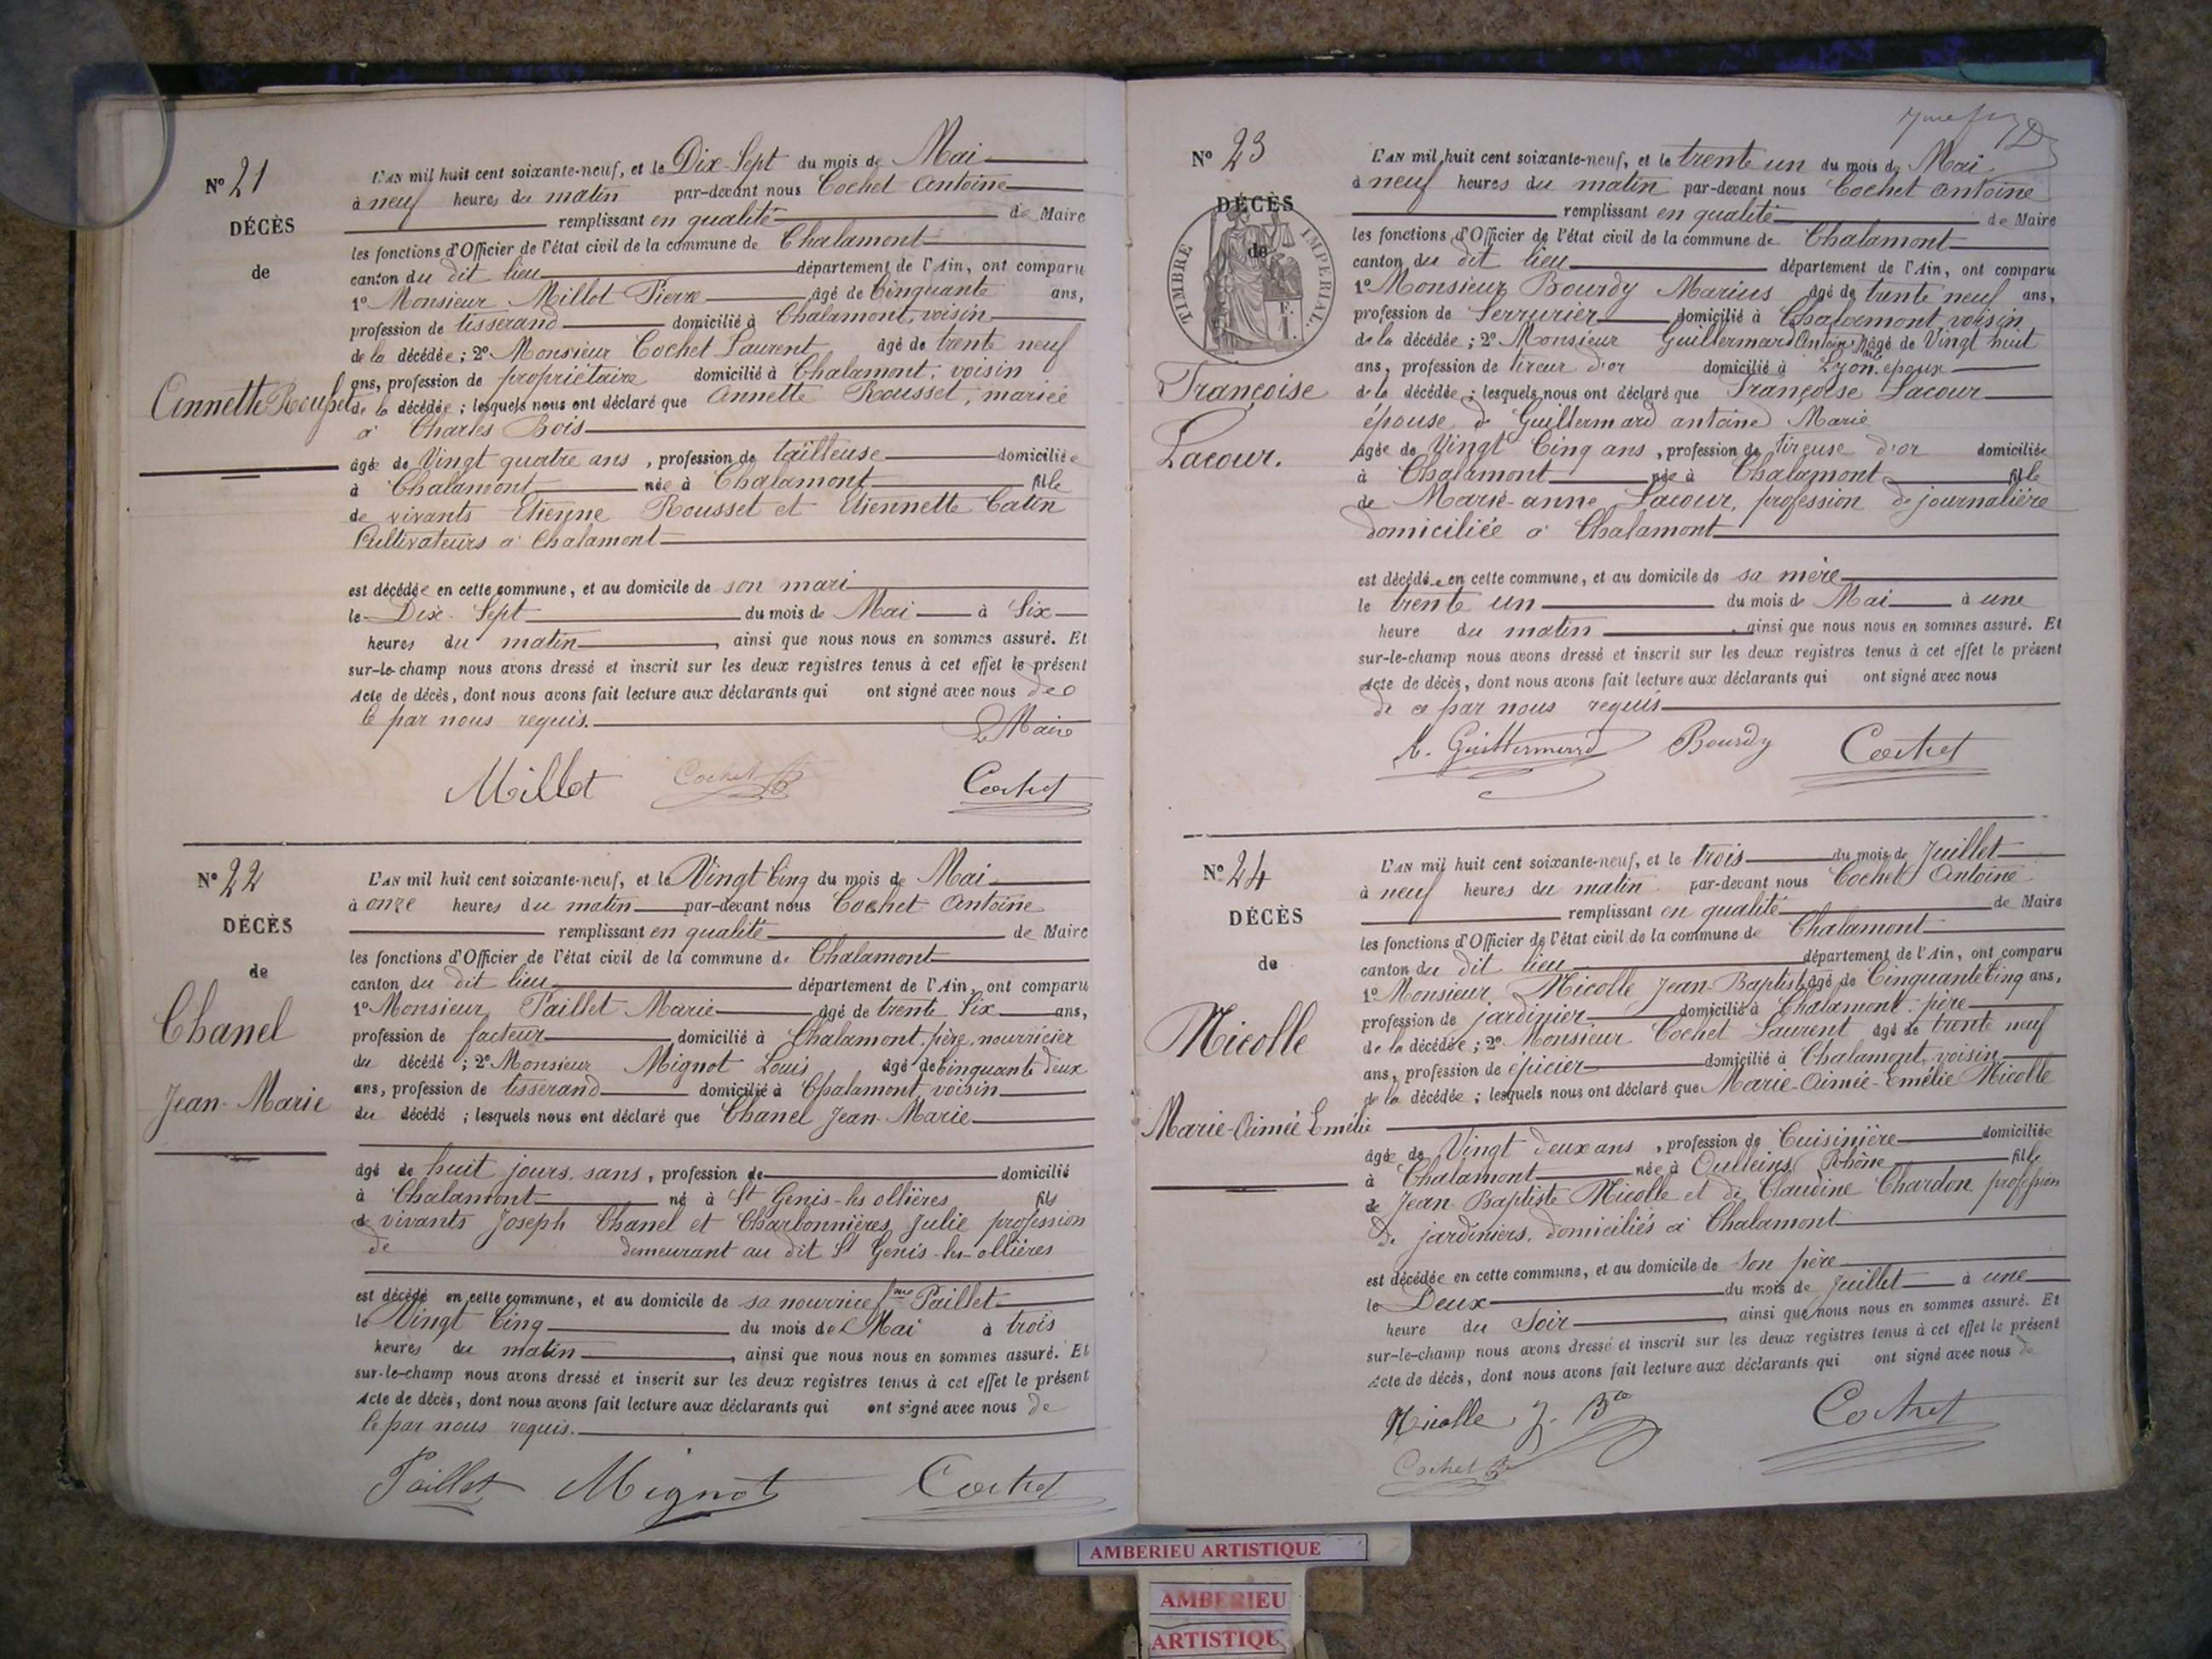 N° 21
DÉCÈS
de
Annette Rousset
L'AN mil huit cent soixante-neuf, et le Dix-Sept du mois de Mai
à neuf heures du matin par-devant nous Cochet Antoine
remplissant en qualité de Maire
les fonctions d'Officier de l'état civil de la commune de Chalamont
canton du dit lieu département de l'Ain, ont comparu
1° Monsieur Millot Pierre âgé de Cinquante ans,
profession de tisserand domicilié à Chalamont, voisin
de la décédée ; 2° Monsieur Cochet Laurent âgé de trente neuf
ans, profession de propriétaire domicilié à Chalamont, voisin
de la décédée ; lesquels nous ont déclaré que Annette Rousset, mariée
à Charles Bois
âgée de Vingt quatre ans , profession de tailleuse domiciliée
à Chalamont née à Chalamont fille
de vivants Etienne Rousset et Etiennette Catin
Cultivateurs à Chalamont
est décédée en cette commune, et au domicile de son mari
le Dix-Sept du mois de Mai à Six
heures du matin , ainsi que nous nous en sommes assuré. Et
sur-le-champ nous avons dressé et inscrit sur les deux registres tenus à cet effet le présent
Acte de décès, dont nous avons fait lecture aux déclarants qui ont signé avec nous de
ce par nous requis.
Le Maire
Millot Cochet Cochet
N° 22
DÉCÈS
de
Chanel
Jean-Marie
L'AN mil huit cent soixante-neuf, et le Vingt Cinq du mois de Mai
à onze heures du matin par-devant nous Cochet Antoine
remplissant en qualité de Maire
les fonctions d'Officier de l'état civil de la commune de Chalamont
canton du dit lieu département de l'Ain, ont comparu
1° Monsieur Paillet Marie âgé de trente Six ans,
profession de facteur domicilié à Chalamont, père nourricier
du décédé ; 2° Monsieur Mignot Louis âgé de Cinquante deux
ans, profession de tisserand domicilié à Chalamont, voisin
du décédé ; lesquels nous ont déclaré que Chanel Jean-Marie
âgé de huit jours, sans , profession de domicilié
à Chalamont né à St Genis-les ollières fils
de vivants Joseph Chanel et Charbonnières Julie profession
de demeurant au dit St Genis-les-ollières
est décédé en cette commune, et au domicile de sa nourrice fme Paillet
le Vingt Cinq du mois de Mai à trois
heures du matin , ainsi que nous nous en sommes assuré. Et
sur-le-champ nous avons dressé et inscrit sur les deux registres tenus à cet effet le présent
Acte de décès, dont nous avons fait lecture aux déclarants qui ont signé avec nous de
ce par nous requis.
Paillet Mignot Cochet
N° 23
DÉCÈS
de
TIMBRE IMPÉRIAL
1 F.
Françoise
Lacour.
L'AN mil huit cent soixante-neuf, et le trente un du mois de Mai
à neuf heures du matin par-devant nous Cochet Antoine
remplissant en qualité de Maire
les fonctions d'Officier de l'état civil de la commune de Chalamont
canton du dit lieu département de l'Ain, ont comparu
1° Monsieur Bourdy Marius âgé de trente neuf ans,
profession de Serrurier domicilié à Chalamont, voisin
de la décédée ; 2° Monsieur Guillermard Antoine Mie âgé de Vingt huit
ans, profession de tireur d'or domicilié à Lyon. époux
de la décédée ; lesquels nous ont déclaré que Françoise Lacour
épouse de Guillermard antoine Marie
âgée de Vingt Cinq ans , profession de tireuse d'or domiciliée
à Chalamont née à Chalamont fille
de Marie-anne Lacour, profession de journalière
domiciliée à Chalamont
est décédée en cette commune, et au domicile de sa mère
le trente un du mois de Mai à une
heure du matin , ainsi que nous nous en sommes assuré. Et
sur-le-champ nous avons dressé et inscrit sur les deux registres tenus à cet effet le présent
Acte de décès, dont nous avons fait lecture aux déclarants qui ont signé avec nous
de ce par nous requis
A. Guillermard Bourdy Cochet
N° 24
DÉCÈS
de
Nicolle
Marie-Aimée Emélie
L'AN mil huit cent soixante-neuf, et le trois du mois de Juillet
à neuf heures du matin par-devant nous Cochet Antoine
remplissant en qualité de Maire
les fonctions d'Officier de l'état civil de la commune de Chalamont
canton du dit lieu département de l'Ain, ont comparu
1° Monsieur Nicolle Jean-Baptiste âgé de Cinquante Cinq ans,
profession de jardinier domicilié à Chalamont. père
de la décédée ; 2° Monsieur Cochet Laurent âgé de trente neuf
ans, profession de épicier domicilié à Chalamont, voisin
de la décédée ; lesquels nous ont déclaré que Marie-Aimée-Emélie Nicolle
âgée de Vingt deux ans , profession de Cuisinière domiciliée
à Chalamont née à Oulleins, Rhône fille
de Jean Baptiste Nicolle et de Claudine Chardon profession
de jardiniers, domiciliés à Chalamont
est décédée en cette commune, et au domicile de son père
le Deux du mois de Juillet à une
heure du Soir , ainsi que nous nous en sommes assuré. Et
sur-le-champ nous avons dressé et inscrit sur les deux registres tenus à cet effet le présent
Acte de décès, dont nous avons fait lecture aux déclarants qui ont signé avec nous de
Nicolle J. Bte Cochet
Cochet
AMBERIEU ARTISTIQUE
AMBERIEU
ARTISTIQU